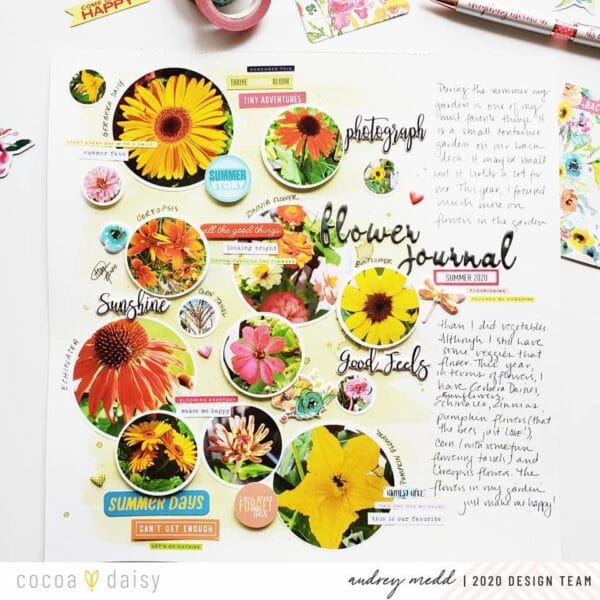 COME ON
HAPPY
REMEMBER THIS
THRIVE BLOOM
TINY ADVENTURES
GERBERA DAISY
START EVERY DAY WITH A SMILE
summer fave
SUMMER
STORY
photograph
During the summer my
garden is one of my
most favorite things. It
is a small container
garden on our back
deck. It may be small
but it holds a lot for
me. This year, I focused
much more on
flowers in the garden
COREOPSIS
ZINNIA FLOWER
all the good things
looking bright
TIPTOW THROUGH THE FLOWERS
flower
journal
SUNFLOWER
SUMMER 2020
FLOURISHING
TOUCHED BY SUNSHINE
Sunshine
CORN TASSEL
Good Feels
than I did vegetables.
Although I still have
some veggies that
flower. This year,
in terms of flowers, I
have Gerbera Daisies,
sunflowers,
Echinacea, Zinnias
pumpkin flowers (that
the bees just LOVE!),
corn (with some fun
flowering tassels) and
Coreopsis flowers. The
flowers in my garden
just make me happy!
ECHINACEA
BLOOMING EVERYDAY
makes me happy
PUMPKIN FLOWER
SUMMER DAYS
CAN'T GET ENOUGH
LET'S GO OUTSIDE
NEVER
FORGET
THIS
this is our favorite
cocoa daisy
audrey medd | 2020 DESIGN TEAM